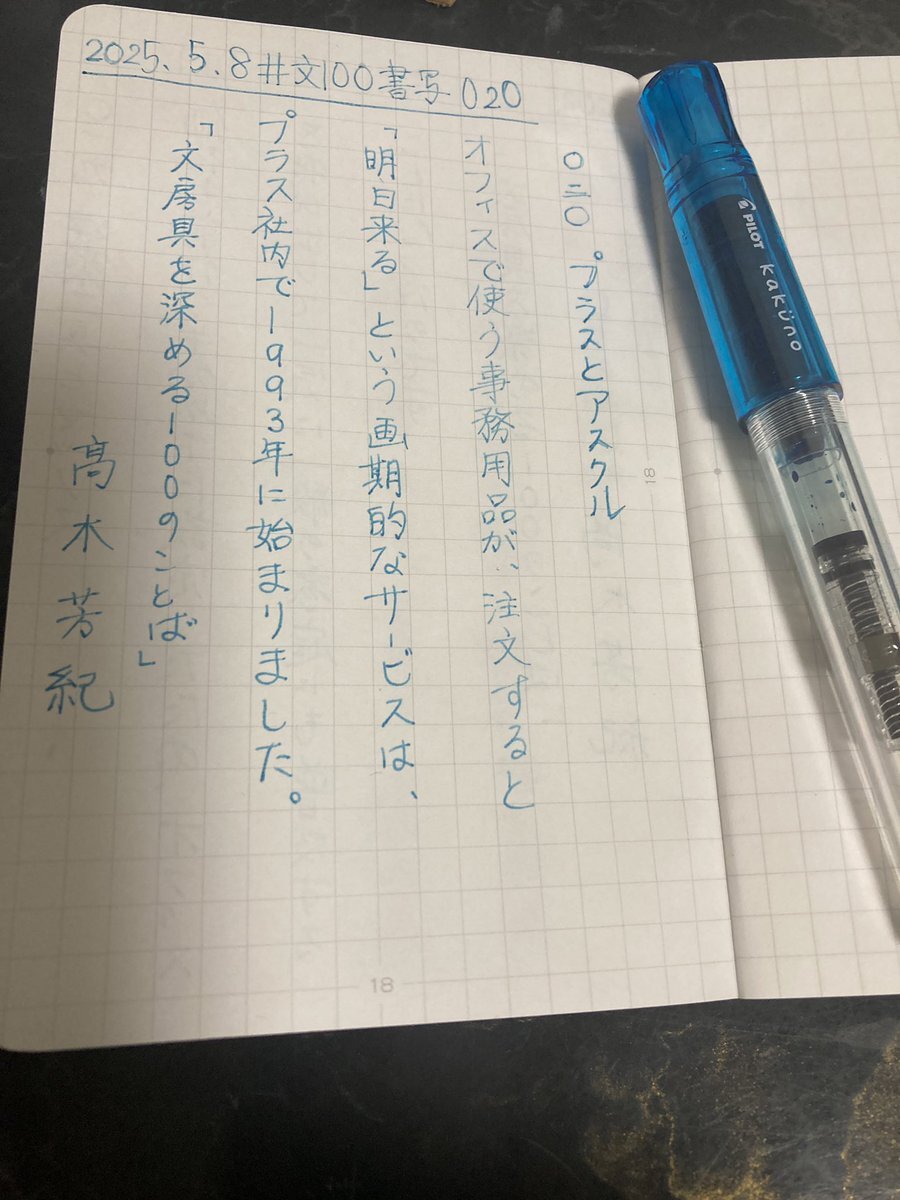 2025.5.8#文100書写020
〇二〇 プラスとアスクル
オフィスで使う事務用品が、注文すると
「明日来る」という画期的なサービスは、
プラス社内で1993年に始まりました。
「文房具を深める100のことば」
高木芳紀
18
18
PILOT kaküno